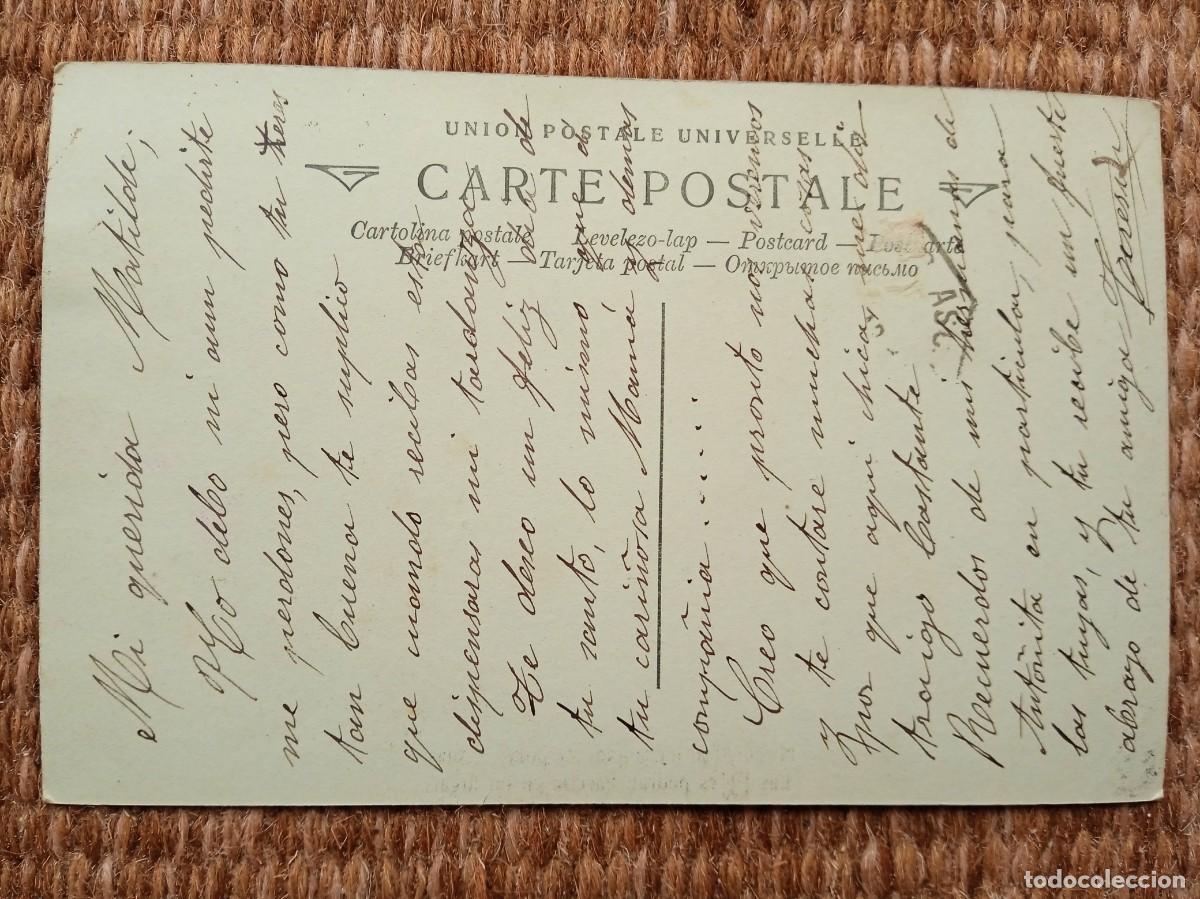 UNION POSTALE UNIVERSELLE
CARTE POSTALE
Cartolina postale Levelezo-lap — Postcard — Postkarte
Briefkart — Tarjeta postal — Открытое письмо
Mi querida Matilde;
No debo ni aun pedirte
me perdones, pero como tu eres
tan buena te suplico
que cuando recibas esta
dispensaras mi tardanza
Te deseo un feliz dia de
tu santo, lo mismo que a
tu cariñosa Mamá y demas
compañia....
Creo que pronto nos veremos
y te contare muchas cosas
por que aqui chica me
traigo bastante
Recuerdos de mis hermanas de
Antoñita en particular, para
las tuyas, y tu recibe un fuerte
abrazo de tu amiga Teresa
todocoleccion